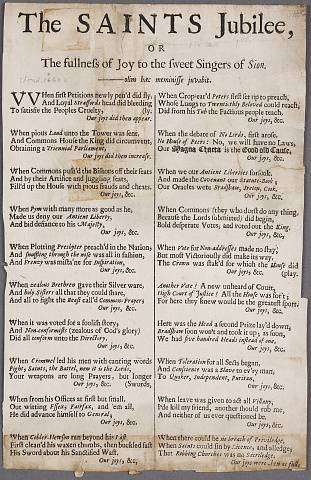 The SAINTS Jubilee,
OR
The fullness of Joy to the sweet Singers of Sion.
olim hæc meminisse juvabit.
WHen first Petitions newly pen'd did fly,
And Loyal Straffords head did bleeding
To satisfie the Peoples Cruelty, (ly,
Our joys did then appear.
When pious Laud unto the Tower was sent,
And Commons House the King did circumvent,
Obtaining a Triennial Parliament,
Our joys did then increase.
When Commons push'd the Bishops off their seats
And by their Artifice and juggling feats,
Fill'd up the House with pious frauds and cheats.
Our joys, &c.
When Pym with many more as good as he,
Made us deny our Antient Liberty,
And bid defiance to his Majesty,
Our joys, &c.
When Plotting Presbyter preach'd in the Nation;
And snuffling through the nose was all in fashion,
And Frenzy was mista'ne for Inspiration,
Our joys, &c.
When zealous Brethren gave their Silver ware,
And holy Sisters all that they could spare,
And all to fight the Beast call'd Common-Prayer;
Our joys, &c.
When it was voted for a foolish story,
And Non-conformists (zealous of God's glory)
Did all conform unto the Directory,
Our joys, &c.
When Crommel led his men with canting words
Fight; Saints, the Battel, now it is the Lords,
Your weapons are long Prayers, but longer
Our joys, &c. (Swords,
When from his Offices at first but small,
Our witting Essex, Fairfax, and 'em all,
He did advance himself to General,
Our joys, &c.
When Cobler-Hewson ran beyond his Last
First clean'd his waxen thumbs, then buckled fast
His Sword about his Sanctified Wast.
Our joys, &c.
When Crop-ear'd Peters first set up to preach,
Whose Lungs to Twentiethly Beloved could reach,
Did from his Tub the Factious people teach,
Our joys, &c.
When the debate of No Lords, first arose,
No House of Peers: No, we will have no Laws:
Our Magna Charta is the Good old Cause,
Our joys, &c.
When we our Antient Liberties forsook,
And made the Covenant our Statute-book;
Our Oracles were Bradshaw, Ireton, Cook,
Our joys, &c.
When Commons (they who durst do any thing,
Because the Lords inherited) did begin,
Bold desperate Votes, and voted out the King,
Our joys, &c.
When Vote for Non-addresses made no stay,
But most Victoriously did make its way,
The Crown was stak'd for which the House did
Our joys, &c. (play.
Another Vote! A new unheard of Court,
High Court of Justice! All the House was for't;
For here they knew would be the greatest sport,
Our joys, &c.
Here was the Head a second Prize lay'd down,
Bradshaw soon won't and took it up; as soon,
We had five hundred Heads instead of one,
Our joys, &c.
When Toleration for all Sects began,
And Conscience was a Slave to ev'ry man,
To Quaker, Independent, Puritan,
Our joys, &c.
When leave was given to act all Villany,
I'de kill my friend, another should rob me,
And neither of us ever questioned be,
Our joys, &c.
When there could be no breach of Priviledge,
When Saints could sin by Licence, and alledge,
That Robbing Churches was no Sacriledge,
Our joys were then at full.